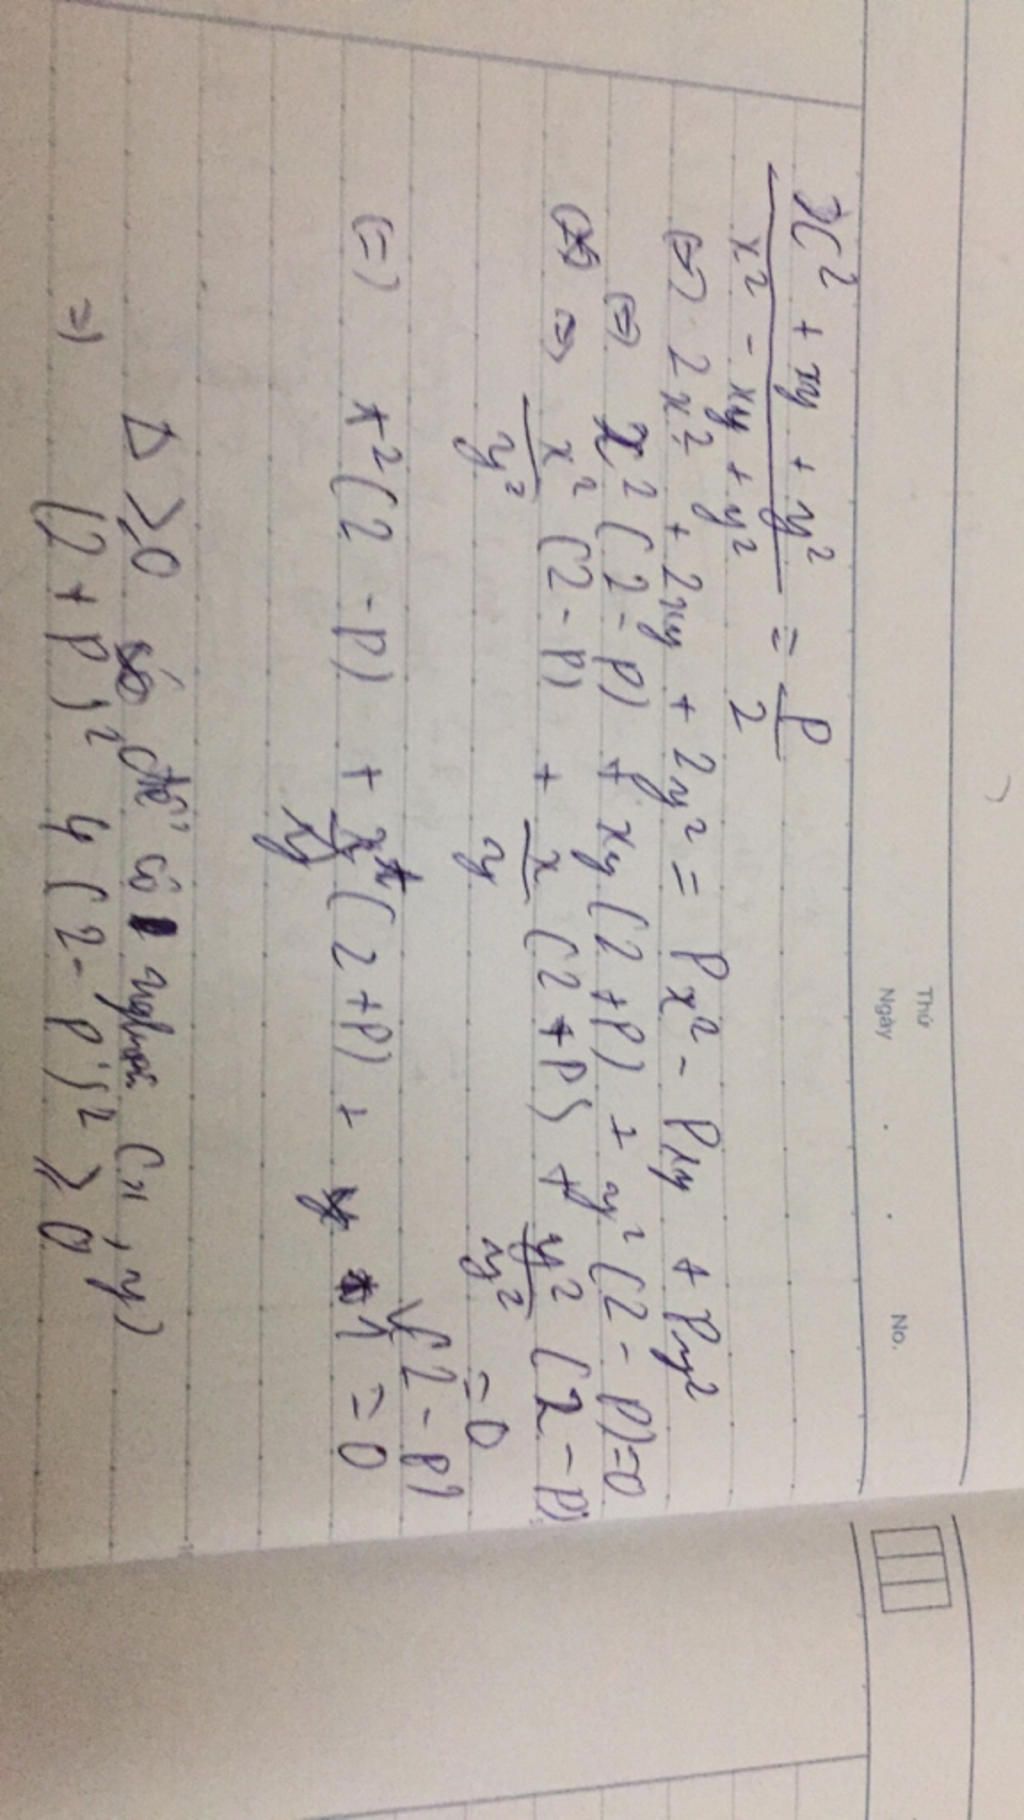 Thứ
Ngày . . No.
x² + xy + y² / x² - xy + y² = P/2
(=) 2x² + 2xy + 2y² = Px² - Pxy + Py²
(=) x²(2-P) + xy(2+P) + y²(2-P)=0
=) x²/y² (2-P) + x/y (2+P) + y²/y² (2-P) = 0
(=) t²(2-P) + t(2+P) + 1(2-P) = 0
Δ ≥ 0 để có nghiệm (x, y)
=) (2+P)² 4(2-P)² ≥ 0